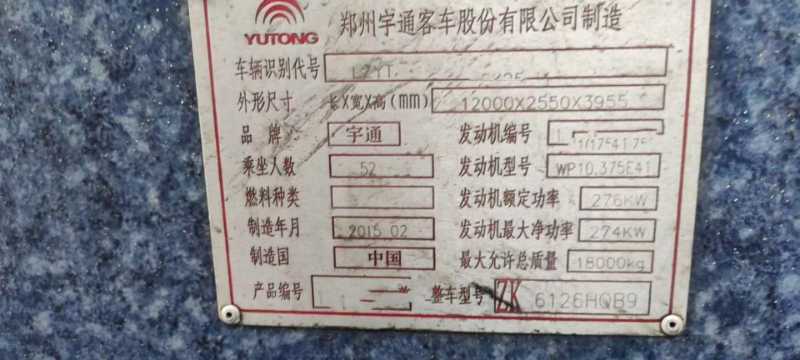 YUTONG 郑州宇通客车股份有限公司制造
车辆识别代号
外形尺寸 长X宽X高(mm) 12000X2550X3955
品牌 宇通 发动机编号
乘坐人数 52 发动机型号 WP10.375E41
燃料种类 发动机额定功率 276KW
制造年月 2015 02 发动机最大净功率 274KW
制造国 中国 最大允许总质量 18000kg
产品编号 整车型号 ZK 6126HQB9